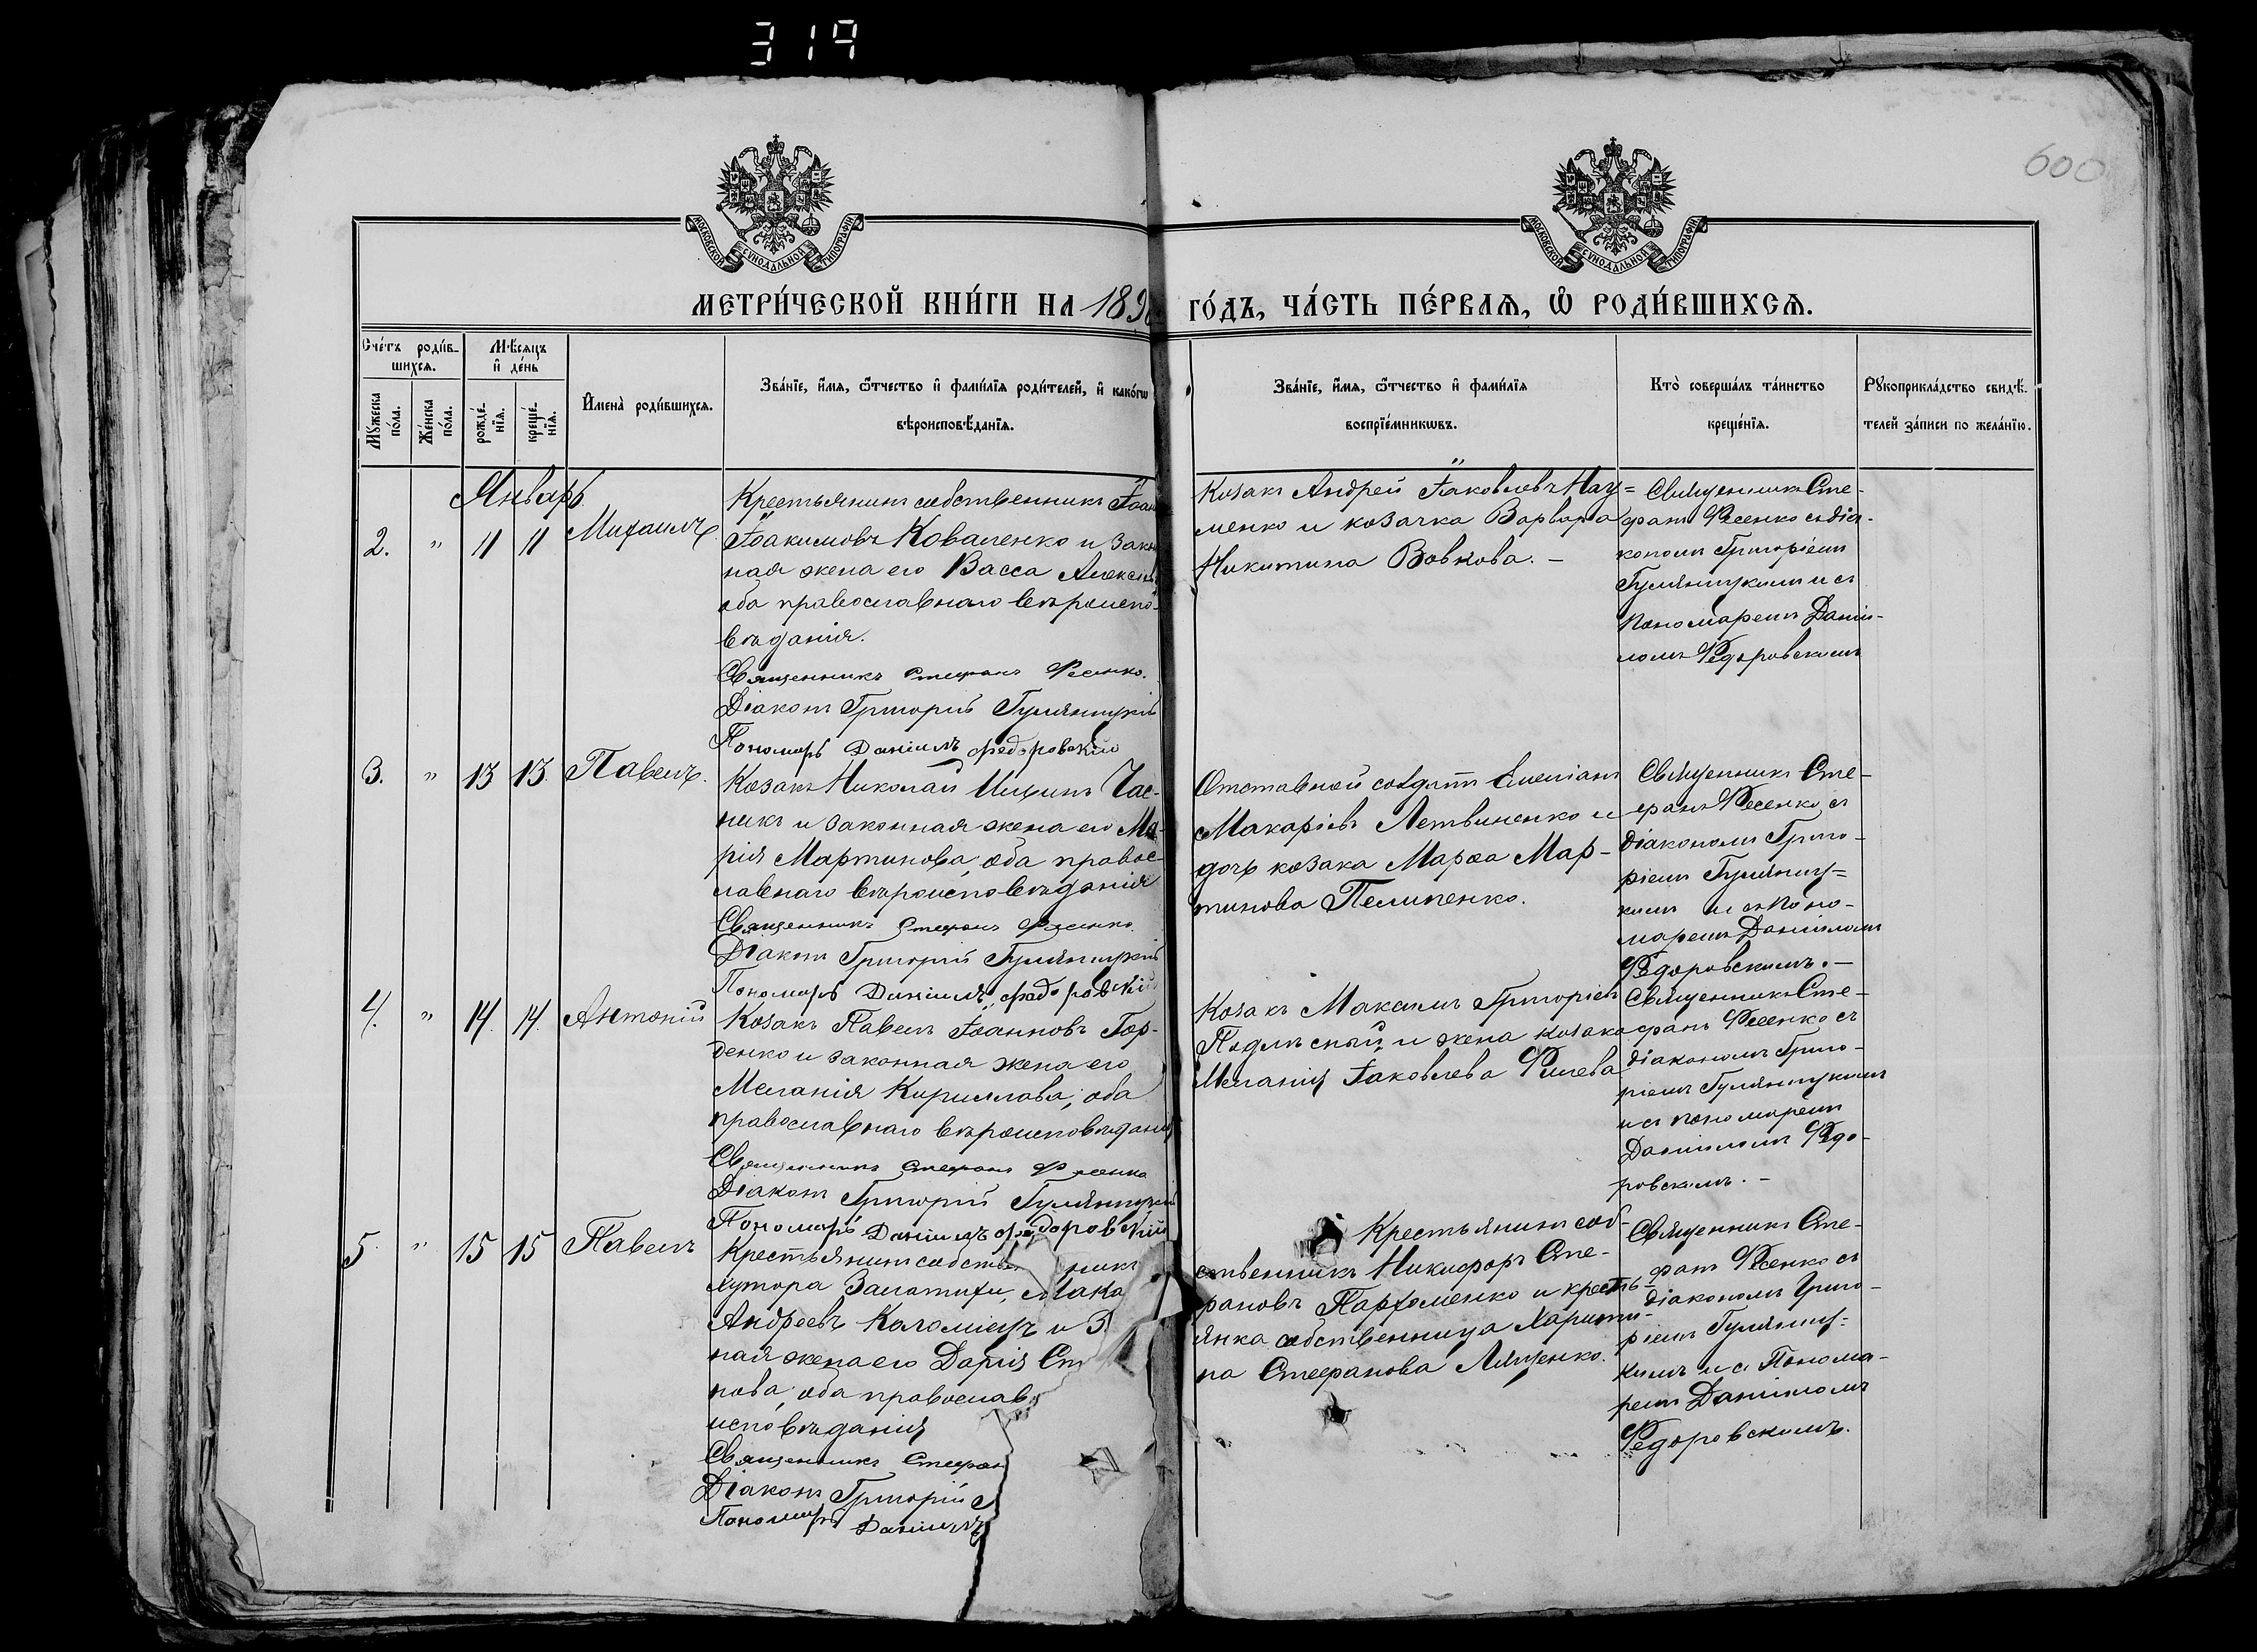 319
600
МОСКОВСКОЙ СУНОДАЛЬНОЙ ТИПОГРАФІИ
МОСКОВСКОЙ СУНОДАЛЬНОЙ ТИПОГРАФІИ
МЕТРИ́ЧЕСКОЙ КНИ́ГИ НА 189
ГО́ДЪ, ЧА́СТЬ ПЕ́РВАѦ, Ѡ҆ РОДИ́ВШИХСѦ.
Сче́тъ роди́в-
шихсѧ.
Мѣ́сѧцъ
и҆ де́нь
Мꙋ́жеска по́ла.
Же́нска по́ла.
рожде́-нїѧ.
креще́-нїѧ.
И҆мена̀ роди́вшихсѧ.
Зва́нїе, и҆́мѧ, ѻ҆́тчество и҆ фами́лїѧ роди́телей, и҆ како́гѡ
вѣроисповѣ́данїѧ.
Зва́нїе, и҆́мѧ, ѻ҆́тчество и҆ фами́лїѧ
воспрїе́мникѡвъ.
Кто̀ соверша́лъ та́инство
креще́нїѧ.
Рꙋкоприкла́дство свидѣ́-
телей за́писи по жела́нїю.
Январь
2. " 11 11 Михаилъ
Крестьянинъ собственникъ Іоан
Іоакимовъ Коваленко и зако
ная жена его Васса Алексѣ
оба православнаго вѣроиспо-
вѣданія.
Священникъ Стефанъ Фесенко.
Діаконъ Григорій Гуляницкій
Пономарь Даніилъ Федоровскій
Козакъ Андрей Іаковлевъ Нау=
менко и козачка Варвара
Никитина Вовкова. –
Священникъ Сте-
фанъ Фесенко съ діа-
кономъ Григоріемъ
Гуляницкимъ и съ
пономаремъ Даніи-
ломъ Федоровскимъ
3. " 13 13. Павелъ.
Козакъ Николай Час-
никъ и законная жена его Ма-
рія Мартинова, оба правос-
лавнаго вѣроисповѣданія
Священникъ Стефанъ Фесенко.
Діаконъ Григорій Гуляницкій
Пономарь Даніилъ Федоровскій
Отставной солдатъ Емеліанъ
Макаріевъ Летвиненко и
дочь козака Марѳа Мар-
тинова Пелипенко.
Священникъ Сте-
фанъ Фесенко съ
діакономъ Григо-
ріемъ Гуляниц=
кимъ и съ поно-
маремъ Даніиломъ
Федоровскимъ. –
4. " 14. 14. Антоній
Козакъ Павелъ Іоанновъ Гор-
денко и законная жена его
Меланія Кириллова, оба
православнаго вѣроисповѣданія
Священникъ Стефанъ Фесенко
Діаконъ Григорій Гуляницкій
Пономарь Даніилъ Федоровскій
Козакъ Максимъ Григоріевъ
Подлѣсный и жена козака
Меланія Іаковлева
Священникъ Сте-
фанъ Фесенко съ
діакономъ Григо-
ріемъ Гуляницкимъ
и съ пономаремъ
Даніиломъ Федо-
ровскимъ. –
5. " 15 15 Павелъ
Крестьянинъ собстве никъ
хутора Залатихи, Мака
Андреевъ Коломіецъ и З
ная жена его Дарія Ст
нова, оба православ
исповѣданія
Священникъ Стефан
Діаконъ Григорій
Пономарь Даніилъ
Крестьянинъ соб-
ственникъ Никифоръ Сте-
фановъ Пархоменко и кресть-
янка собственница Харити-
на Стефанова Лященко.
Священникъ Сте-
фанъ Фесенко съ
діакономъ Григо-
ріемъ Гуляниц=
кимъ и съ Понома-
ремъ Даніиломъ
Федоровскимъ.